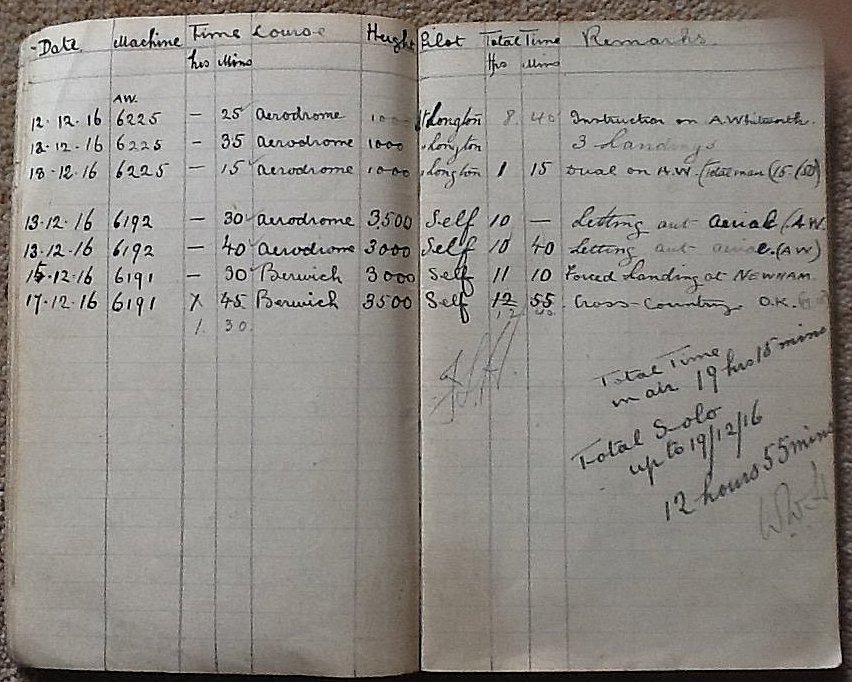 Date Machine Time Course Height Pilot Total Time Remarks
hrs Mins Hrs Mins
AW.
12.12.16 6225 — 25 aerodrome Longton 8 40 Instruction on A.Whitworth.
12.16 6225 — 35 aerodrome 1000 Longton 3 Landings
12.16 6225 — 15 aerodrome 1000 Longton 1 15 Dual on A.W.
13.12.16 6192 — 30 aerodrome 3,500 Self 10 — Letting out aerial (A.W.
13.12.16 6192 — 40 aerodrome 3000 Self 10 40 Letting out aerial (AW)
15.12.16 6191 — 30 Berwick 3000 Self 11 10 Forced Landing at NEWHAM.
17.12.16 6191 45 Berwick 3500 Self 12 55 Cross-Country O.K.
1. 30. 12 40
Total Time
in air 19 hrs 15 mins
Total Solo
up to 19/12/16
12 hours 55 mins